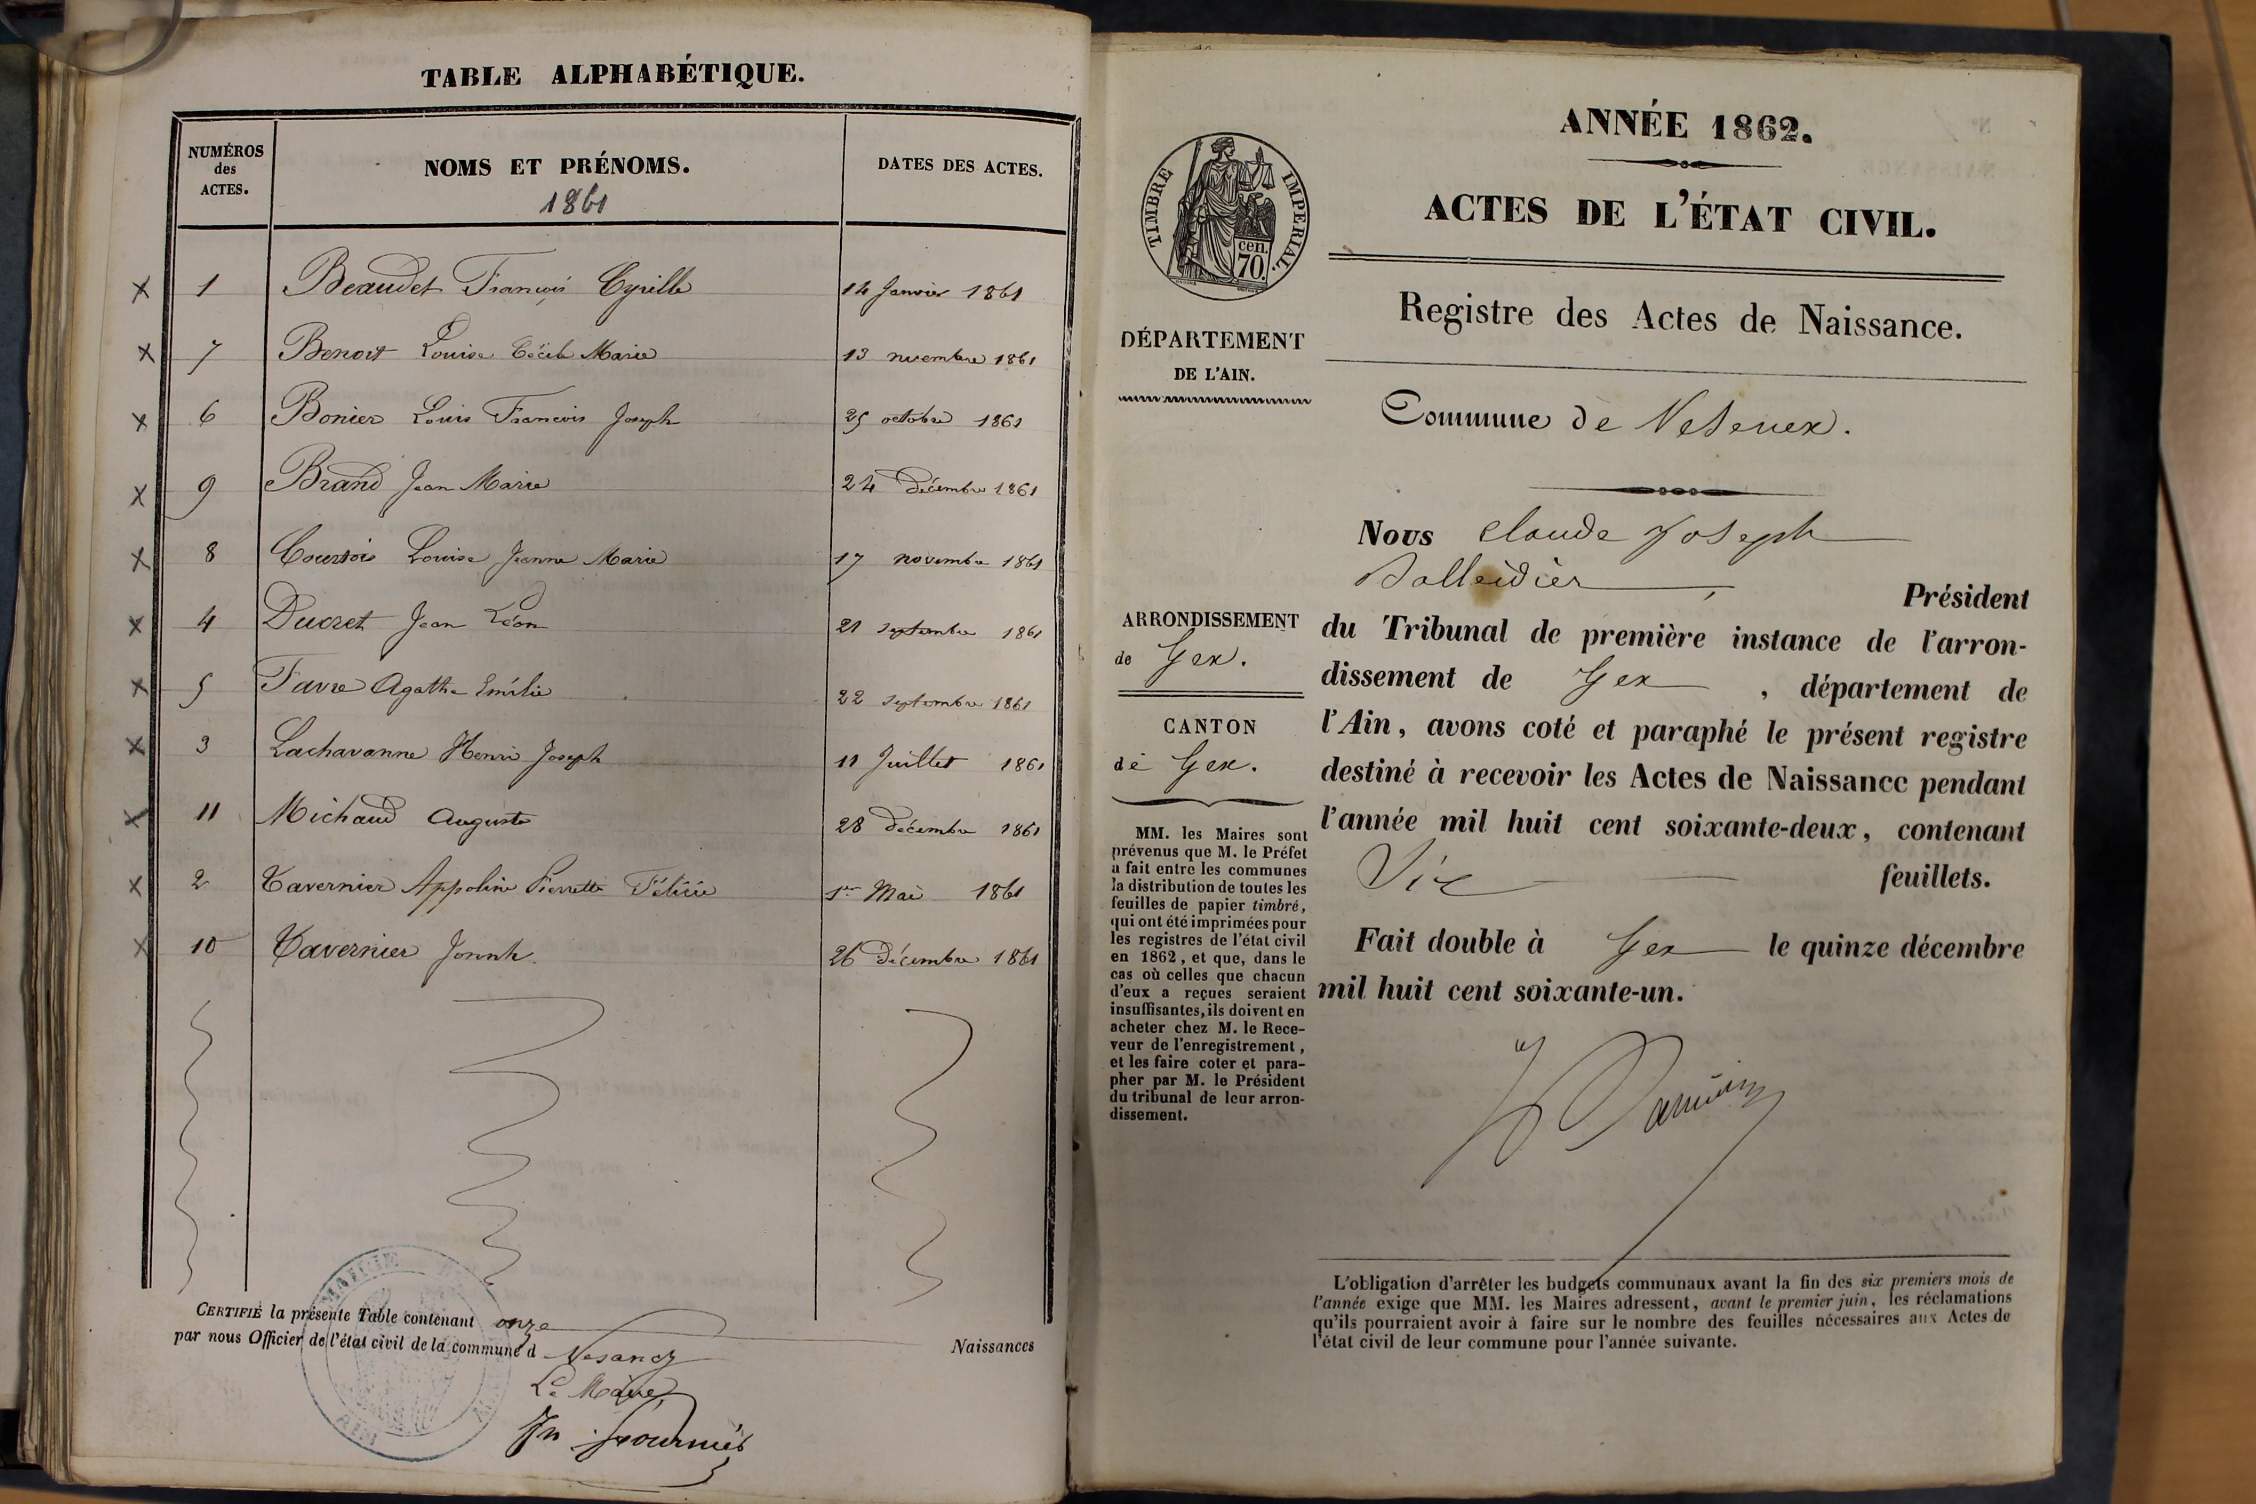 TABLE ALPHABÉTIQUE.
NUMÉROS
des
ACTES.
NOMS ET PRÉNOMS.
1861
DATES DES ACTES.
x 1 Beaudet François Cyrille 14 Janvier 1861
x 7 Benoit Louise Cécile Marie 13 novembre 1861
x 6 Bonier Louis François Joseph 25 octobre 1861
x 9 Brand Jean Marie 24 décembre 1861
x 8 Courtois Louise Jeanne Marie 17 novembre 1861
x 4 Ducret Jean Léon 21 septembre 1861
x 5 Favre Agathe Emélie 22 septembre 1861
x 3 Lachavanne Henri Joseph 11 Juillet 1861
x 11 Michaud Auguste 28 décembre 1861
x 2 Tavernier Appoline Pierrette Félicie 1er Mai 1861
x 10 Tavernier 26 décembre 1861
CERTIFIÉ la présente Table contenant onze Naissances
par nous Officier de l'état civil de la commune d
Le Maire
Fournier
MAIRIE
AIN
TIMBRE IMPERIAL.
cen.
70.
DÉPARTEMENT
DE L'AIN.
ARRONDISSEMENT
de Gex.
CANTON
de Gex.
MM. les Maires sont
prévenus que M. le Préfet
a fait entre les communes
la distribution de toutes les
feuilles de papier timbré,
qui ont été imprimées pour
les registres de l'état civil
en 1862, et que, dans le
cas où celles que chacun
d'eux a reçues seraient
insuffisantes, ils doivent en
acheter chez M. le Rece-
veur de l'enregistrement,
et les faire coter et para-
pher par M. le Président
du tribunal de leur arron-
dissement.
ANNÉE 1862.
ACTES DE L'ÉTAT CIVIL.
Registre des Actes de Naissance.
Commune de Vesenex.
Nous Claude Joseph
Balleidier, Président
du Tribunal de première instance de l'arron-
dissement de Gex, département de
l'Ain, avons coté et paraphé le présent registre
destiné à recevoir les Actes de Naissance pendant
l'année mil huit cent soixante-deux, contenant
Six feuillets.
Fait double à Gex le quinze décembre
mil huit cent soixante-un.
L'obligation d'arrêter les budgets communaux avant la fin des six premiers mois de
l'année exige que MM. les Maires adressent, avant le premier juin, les réclamations
qu'ils pourraient avoir à faire sur le nombre des feuilles nécessaires aux Actes de
l'état civil de leur commune pour l'année suivante.